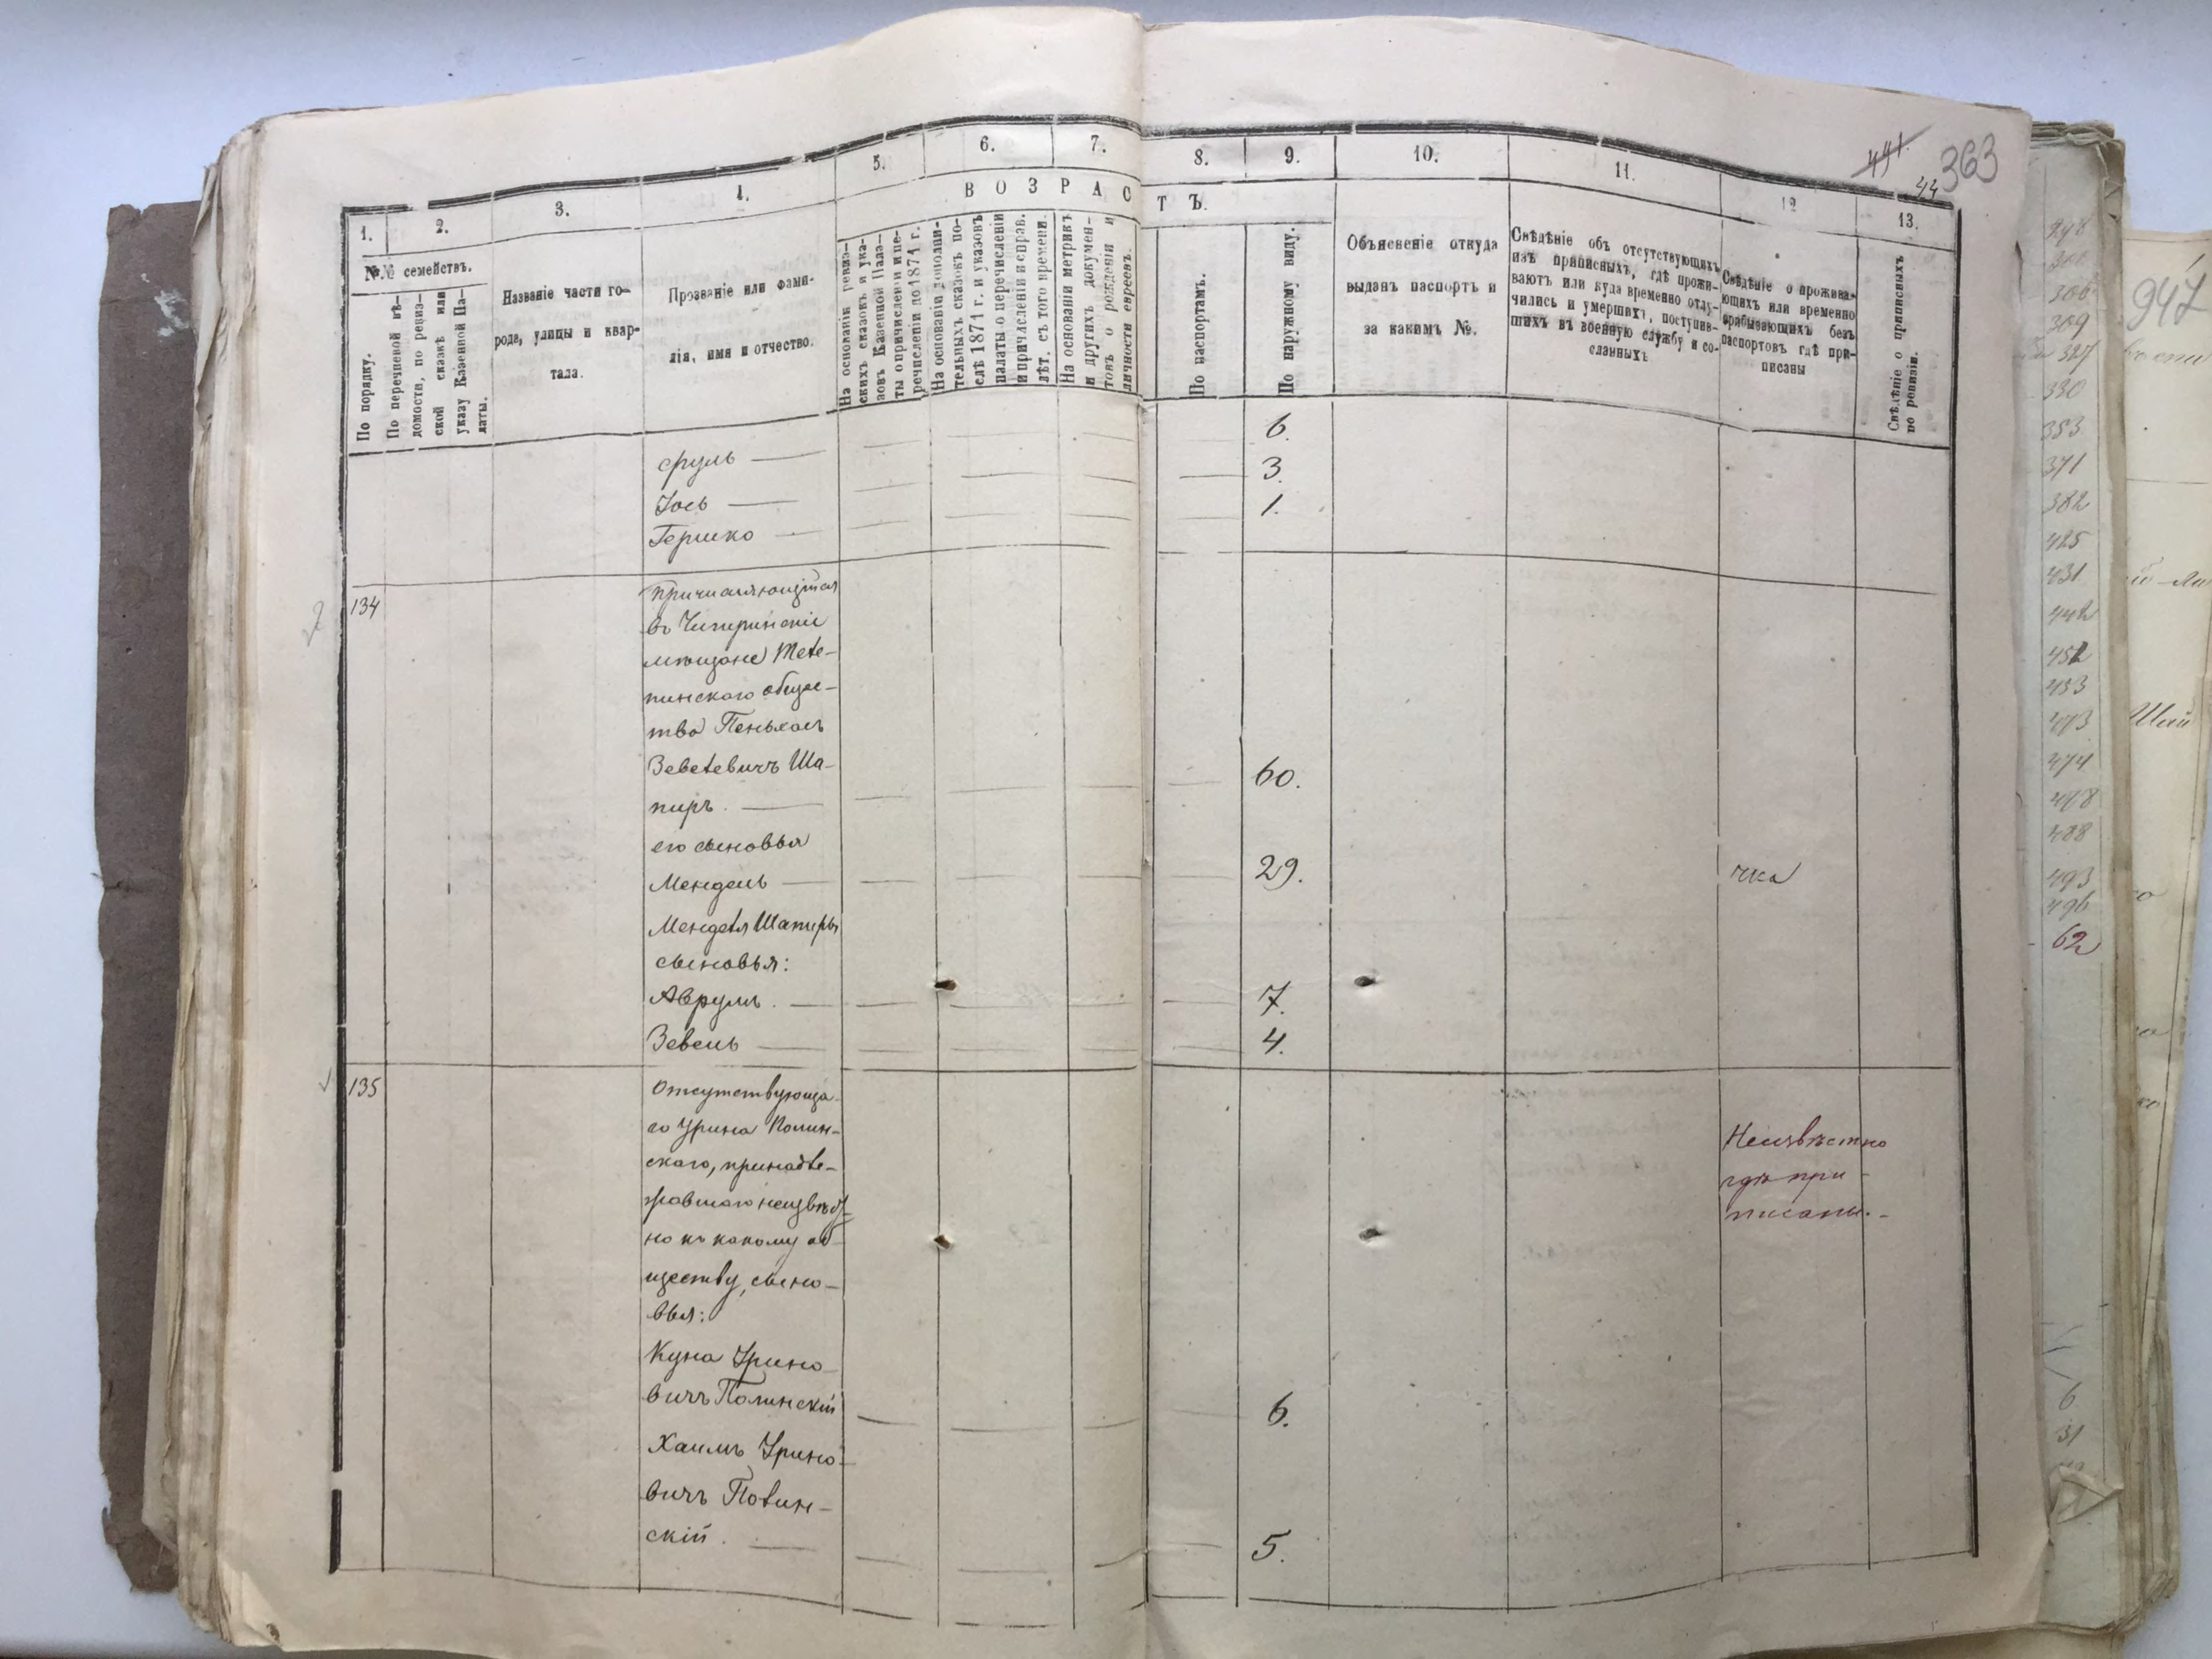 441.
44
363
1.
2.
3.
4.
5.
6.
7.
8.
9.
10.
11.
12
13.
В О З Р А С Т Ъ.
№№ семействъ.
По порядку.
По перечневой вѣ-
домости, по ревиз-
ской сказкѣ или
указу Казенной Па-
латы.
Названіе части го-
рода, улицы и квар-
тала.
Прозваніе или фами-
лія, имя и отчество.
На основаніи ревиз-
скихъ сказокъ и ука-
зовъ Казенной Пала-
ты о причисленіи и пе-
речисленіи до 1871 г.
На основаніи дополни-
тельныхъ сказокъ по-
слѣ 1871 г. и указовъ
палаты о перечисленіи
и причисленіи и справ.
лѣт. съ того времени.
На основаніи метрикъ
и другихъ докумен-
товъ о рожденіи и
личности евреевъ.
По паспортамъ.
По наружному виду.
Объясненіе откуда
выданъ паспортъ и
за какимъ №.
Свѣдѣніе объ отсутствующихъ
изъ приписныхъ, гдѣ прожи-
ваютъ или куда временно отлу-
чились и умершихъ, поступив-
шихъ въ военную службу и со-
сланныхъ
Свѣдѣніе о прожива-
ющихъ или временно
прибывающихъ безъ
паспортовъ гдѣ при-
писаны
Свѣдѣніе о приписныхъ
по ревизіи.
Сруль — 6.
Іось — 3.
Гершко — 1.
134
Причисляющійся
въ Чигиринскіе
мѣщане Теле-
пинского общес-
тва Пеньхасъ
Зевелевичъ Ша-
пиръ. — 60.
его сыновья
Мендель — 29.
Менделя Шапиры
сыновья:
Аврумъ. — 7.
Зевель — 4.
135
Отсутствующа-
го Урина Полин-
скаго, принадле-
жавшаго неизвѣст-
но къ какому об-
ществу, сыно-
вья:
Неизвѣстно
гдѣ при-
писаны.-
Куна Урино-
вичъ Полинскій — 6.
Хаимъ Урино-
вичъ Полин-
скій. — 5.
330
353
371
382
425
431
442
452
453
473
474
478
488
493
496
62
6
31
947